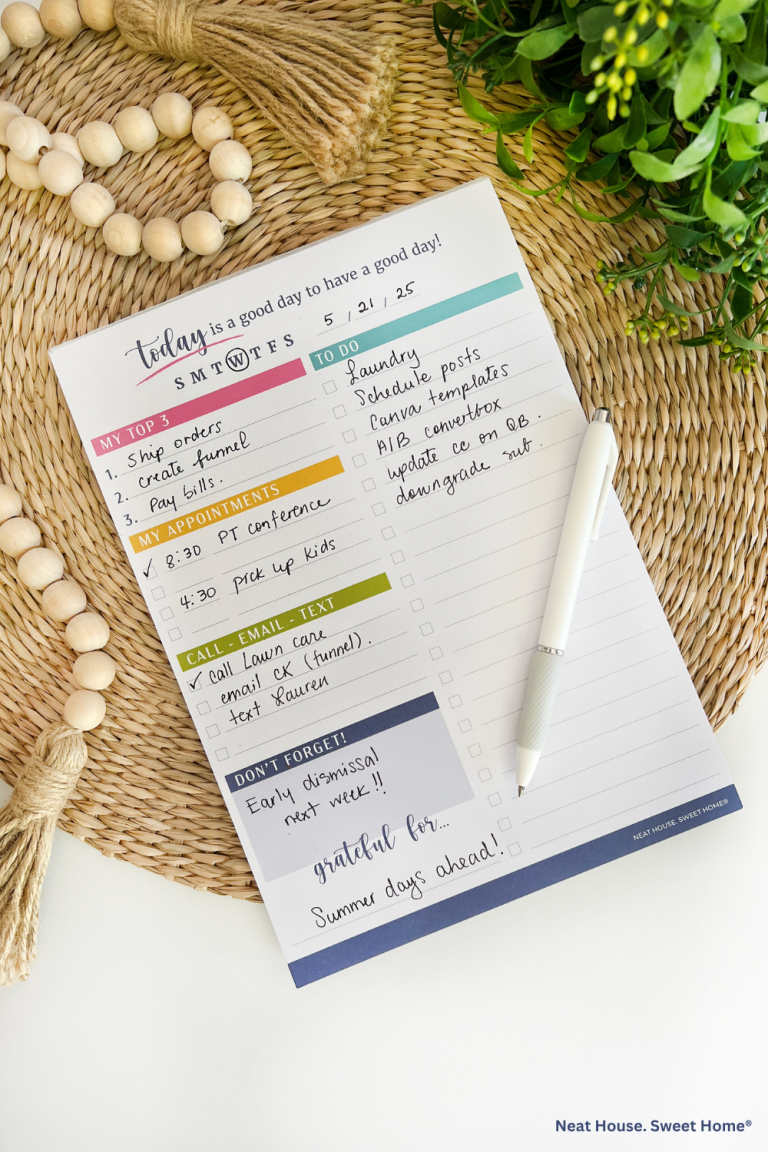 today is a good day to have a good day!
S M T W T F S
5 / 21 / 25
MY TOP 3
1. Ship orders
2. create funnel
3. Pay bills.
MY APPOINTMENTS
✓ 8:30 PT conference
4:30 pick up kids
CALL - EMAIL - TEXT
✓ call Lawn care
email CK (funnel).
text Lauren
DON'T FORGET!
Early dismissal
next week!!
grateful for...
Summer days ahead!
TO DO
Laundry
Schedule posts
Canva templates
A/B convertbox
update cc on QB.
downgrade sub.
NEAT HOUSE. SWEET HOME®
Neat House. Sweet Home®